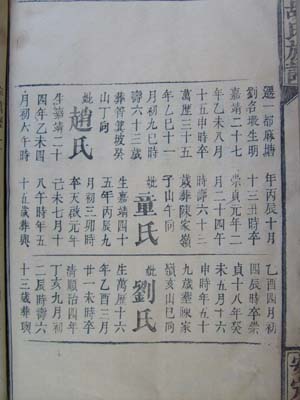 胡氏族譜
遷一都麻塘
劉名墈生明
嘉靖二十七
年乙未八月
十五申時卒
萬歷三十五
年乙巳十一
月初九巳時
壽六十三歲
葬管箕坡癸
山丁向
妣趙氏
生嘉靖二十
四年乙未四
月初六午時
年丙辰十月
十三丑時卒
崇貞元年二
月二十四午
時壽六十三
歲葬陳家嶺
子山午向
妣童氏
生嘉靖四十
五年丙辰九
月初三卯時
卒天啟元年
己未七月十
八午時壽五
十五歲葬與
乙酉四月初
四辰時卒崇
貞十八年癸
未五月十六
申時年五十
九歲葬陳家
嶺亥山巳向
妣劉氏
生萬歷十六
年乙酉三月
廿一未時卒
清順治四年
丁亥九月初
二辰時壽六
十三歲葬與
安定